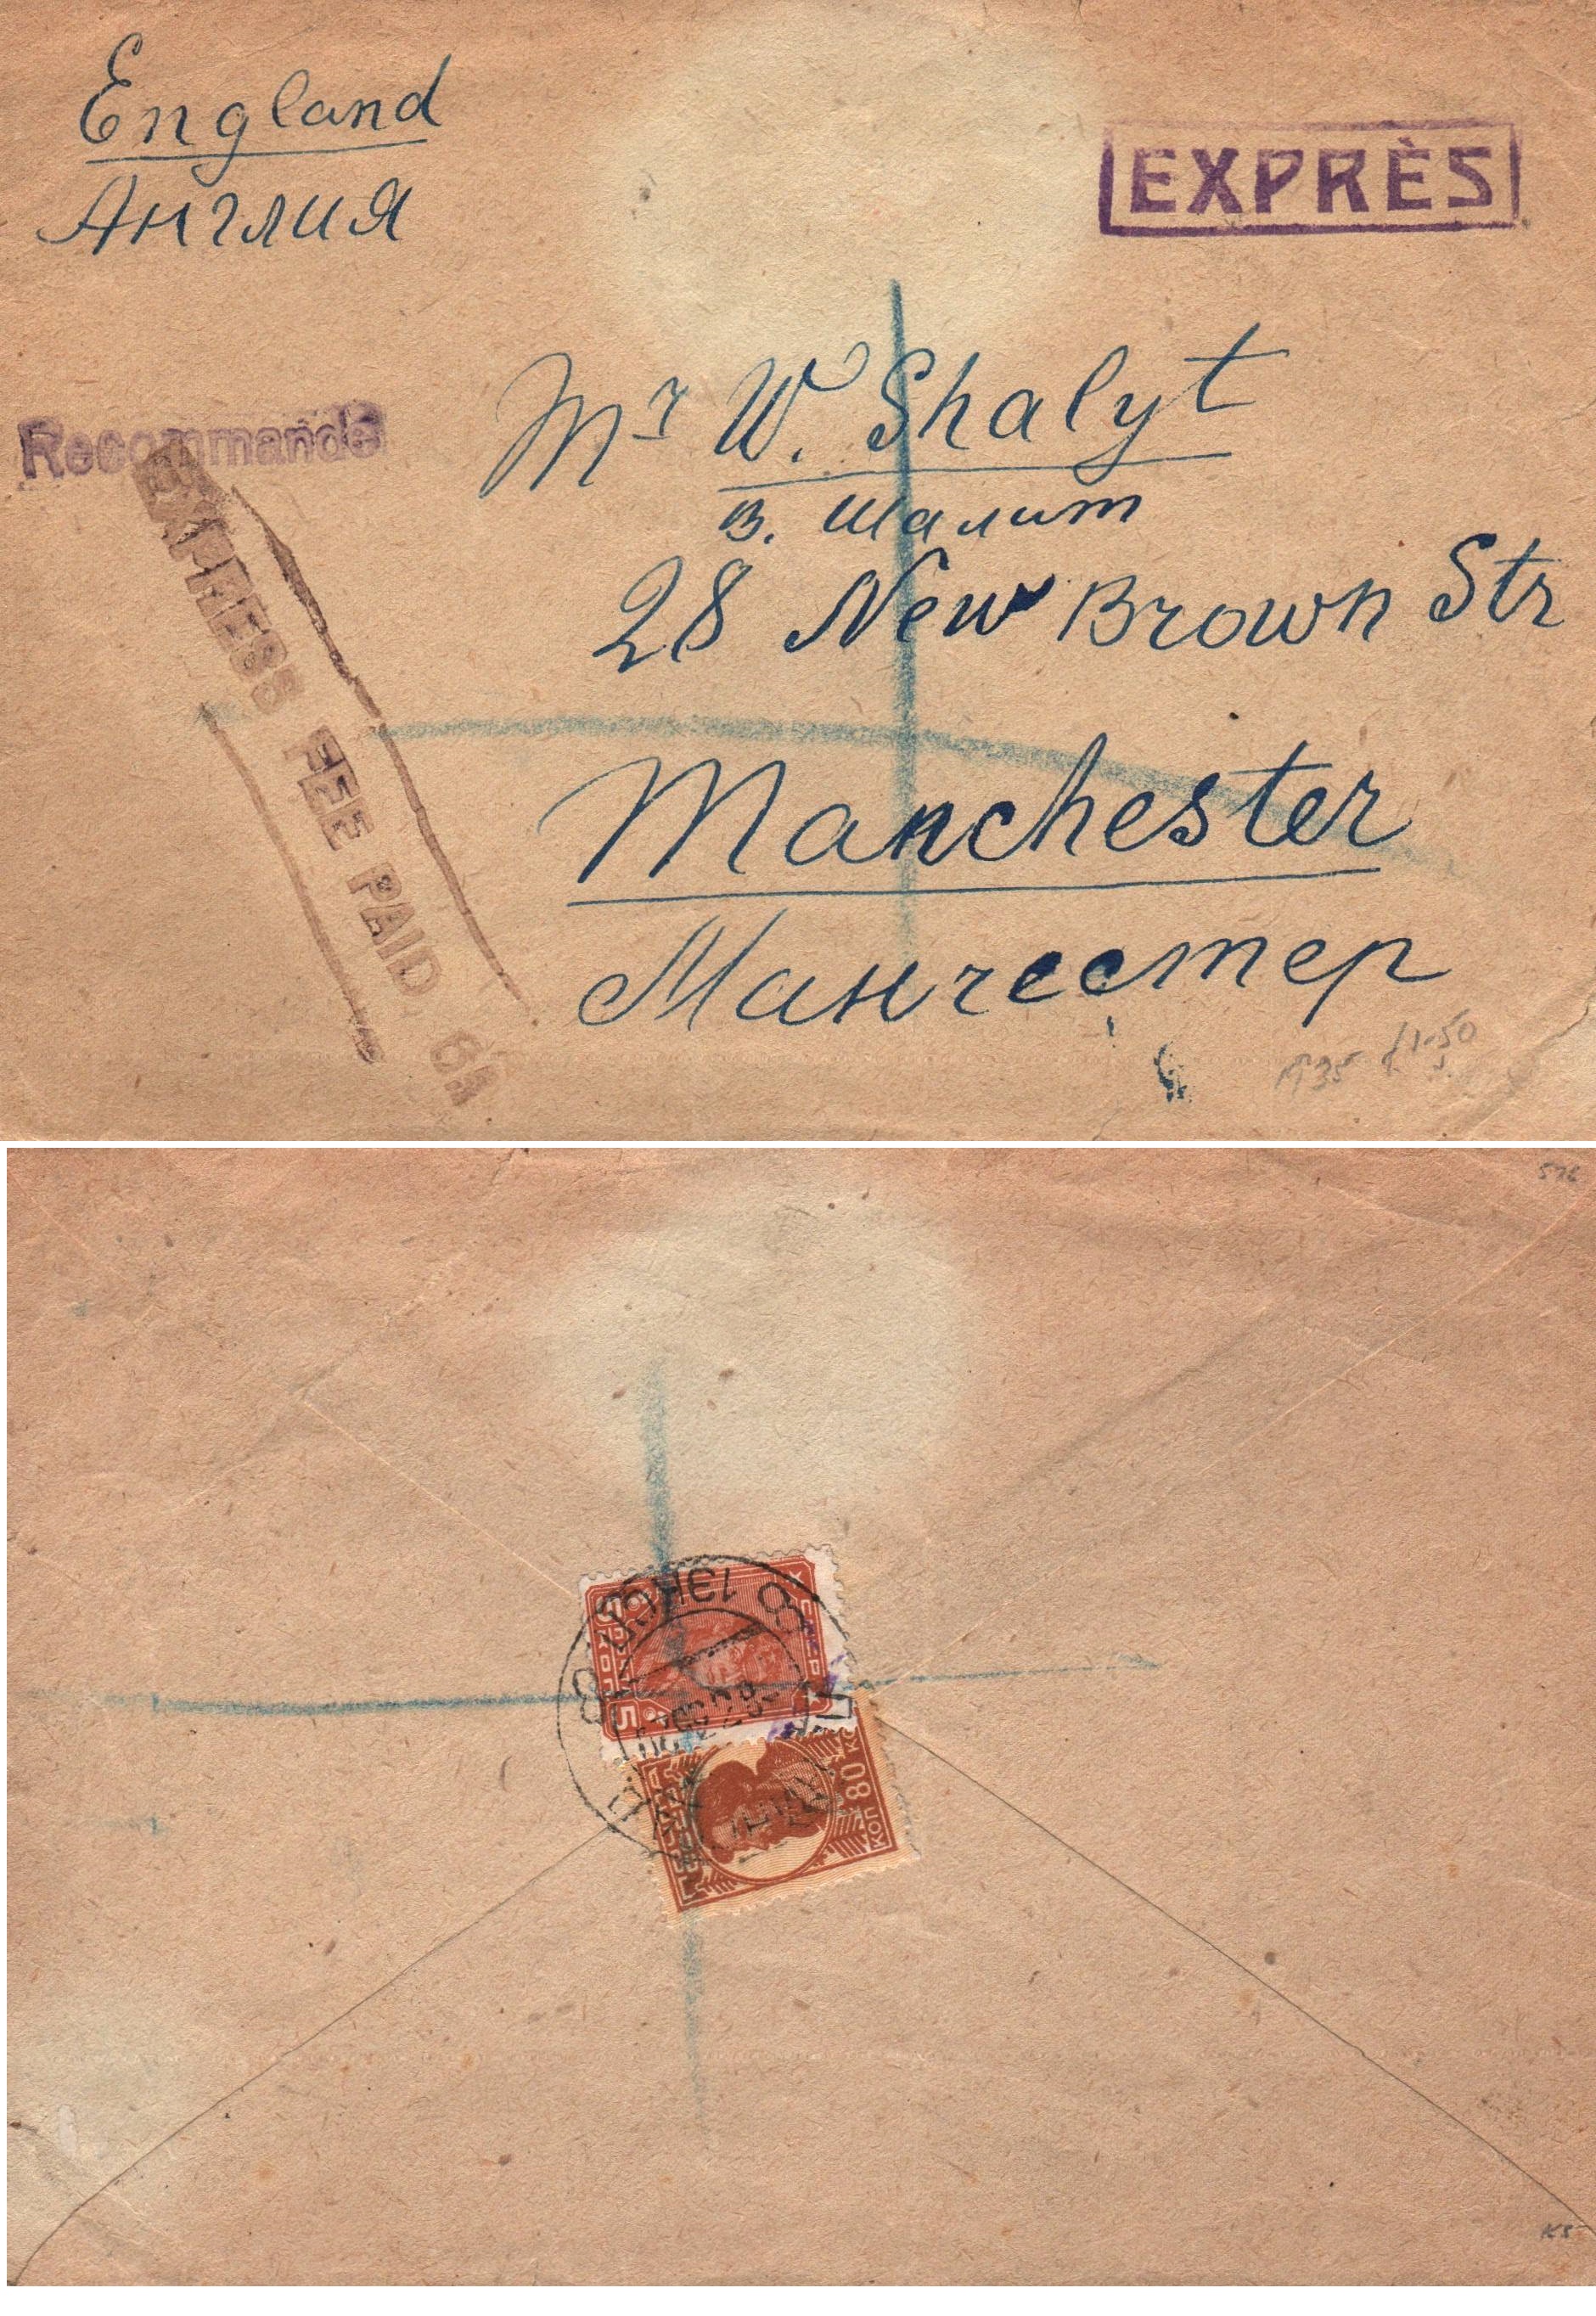 England
Англия
EXPRÈS
Recommandé
EXPRESS FEE PAID 6D
Mr W. Shalyt
В. Шалит
28 New Brown Str
Manchester
Манчестер
£1.50
5 КОП 5
80 КОП
КОП